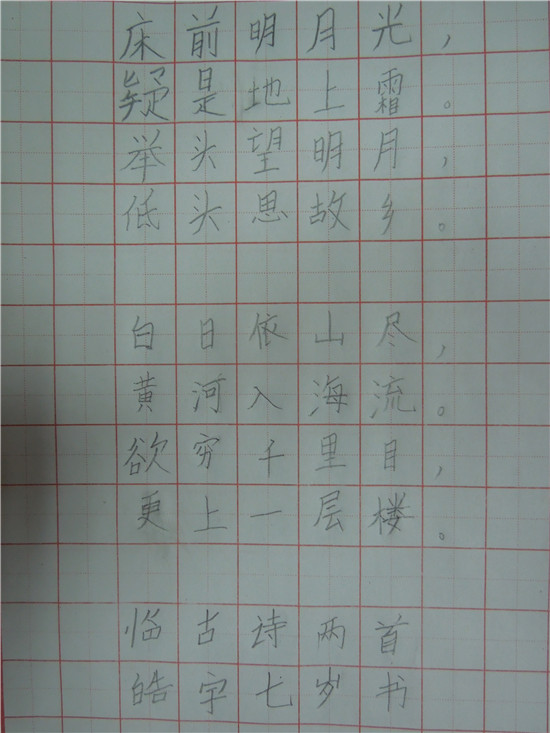 床前明月光，
疑是地上霜。
举头望明月，
低头思故乡。
白日依山尽，
黄河入海流。
欲穷千里目，
更上一层楼。
临古诗两首
皓宇七岁书